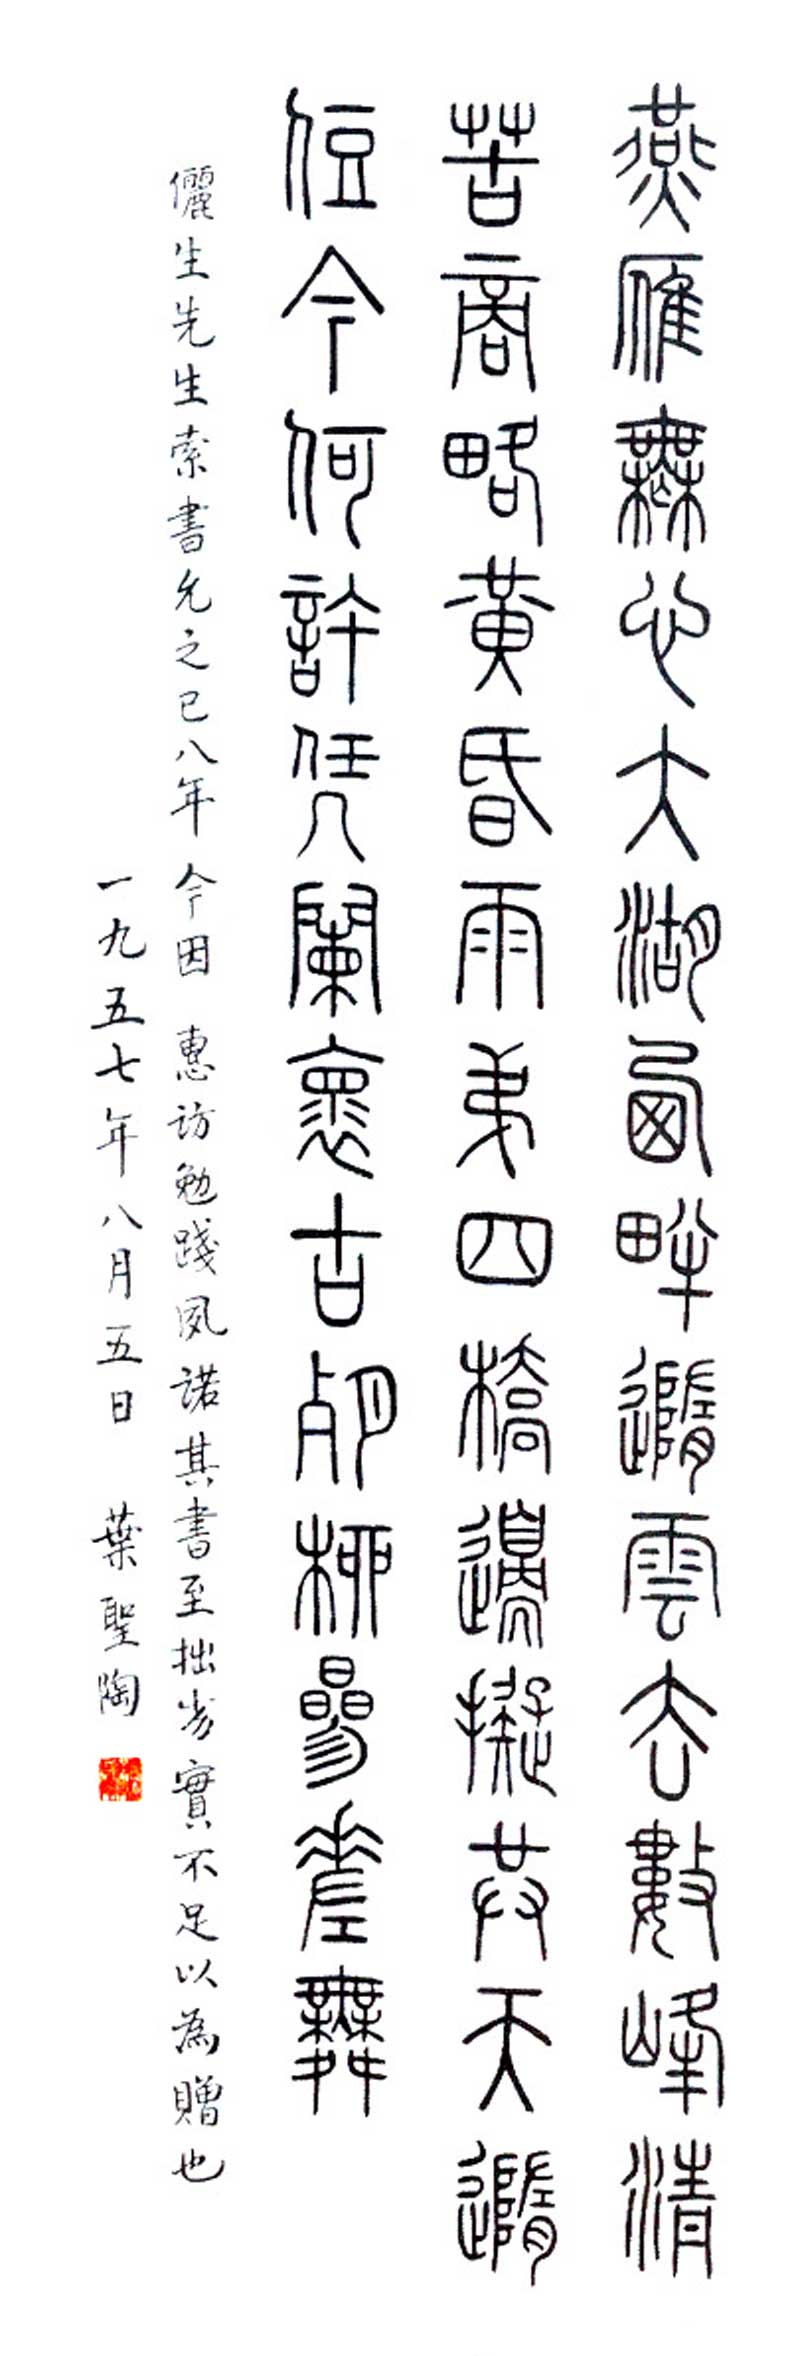 燕雁無心大湖西畔隨雲去數峰清
苦商略黃昏雨弟四橋邊擬共天隨
侸今何許凭闌褱古殘柳參差舞
儷生先生索書允之已八年今因 惠訪勉踐夙諾其書至拙劣實不足以為贈也
一九五七年八月五日 葉聖陶